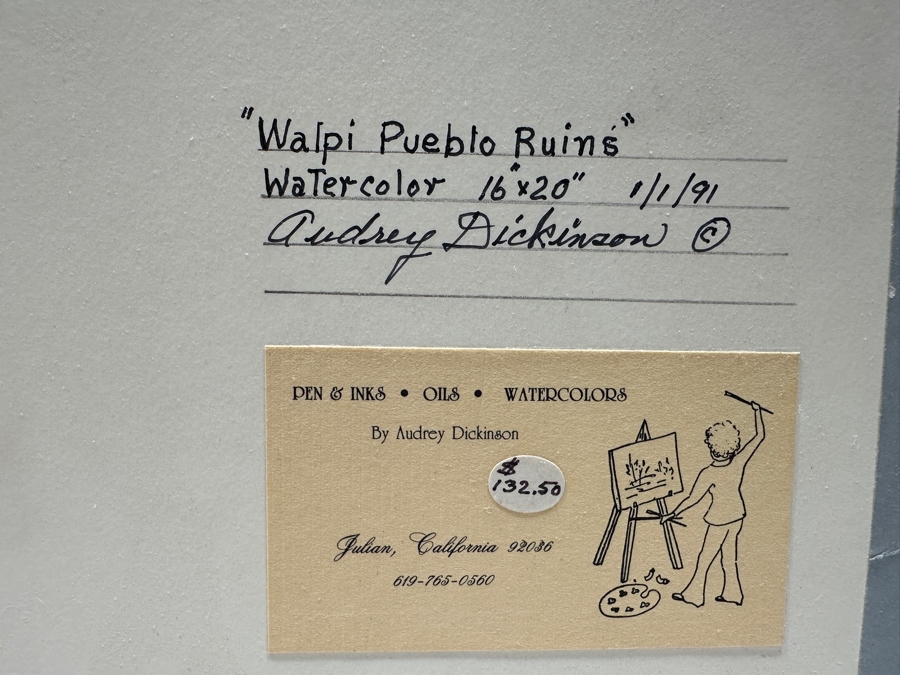 "Walpi Pueblo Ruins"
Watercolor 16"x20" 1/1/91
Audrey Dickinson ©
PEN & INKS • OILS • WATERCOLORS
By Audrey Dickinson
$
132.50
Julian, California 92036
619-765-0560